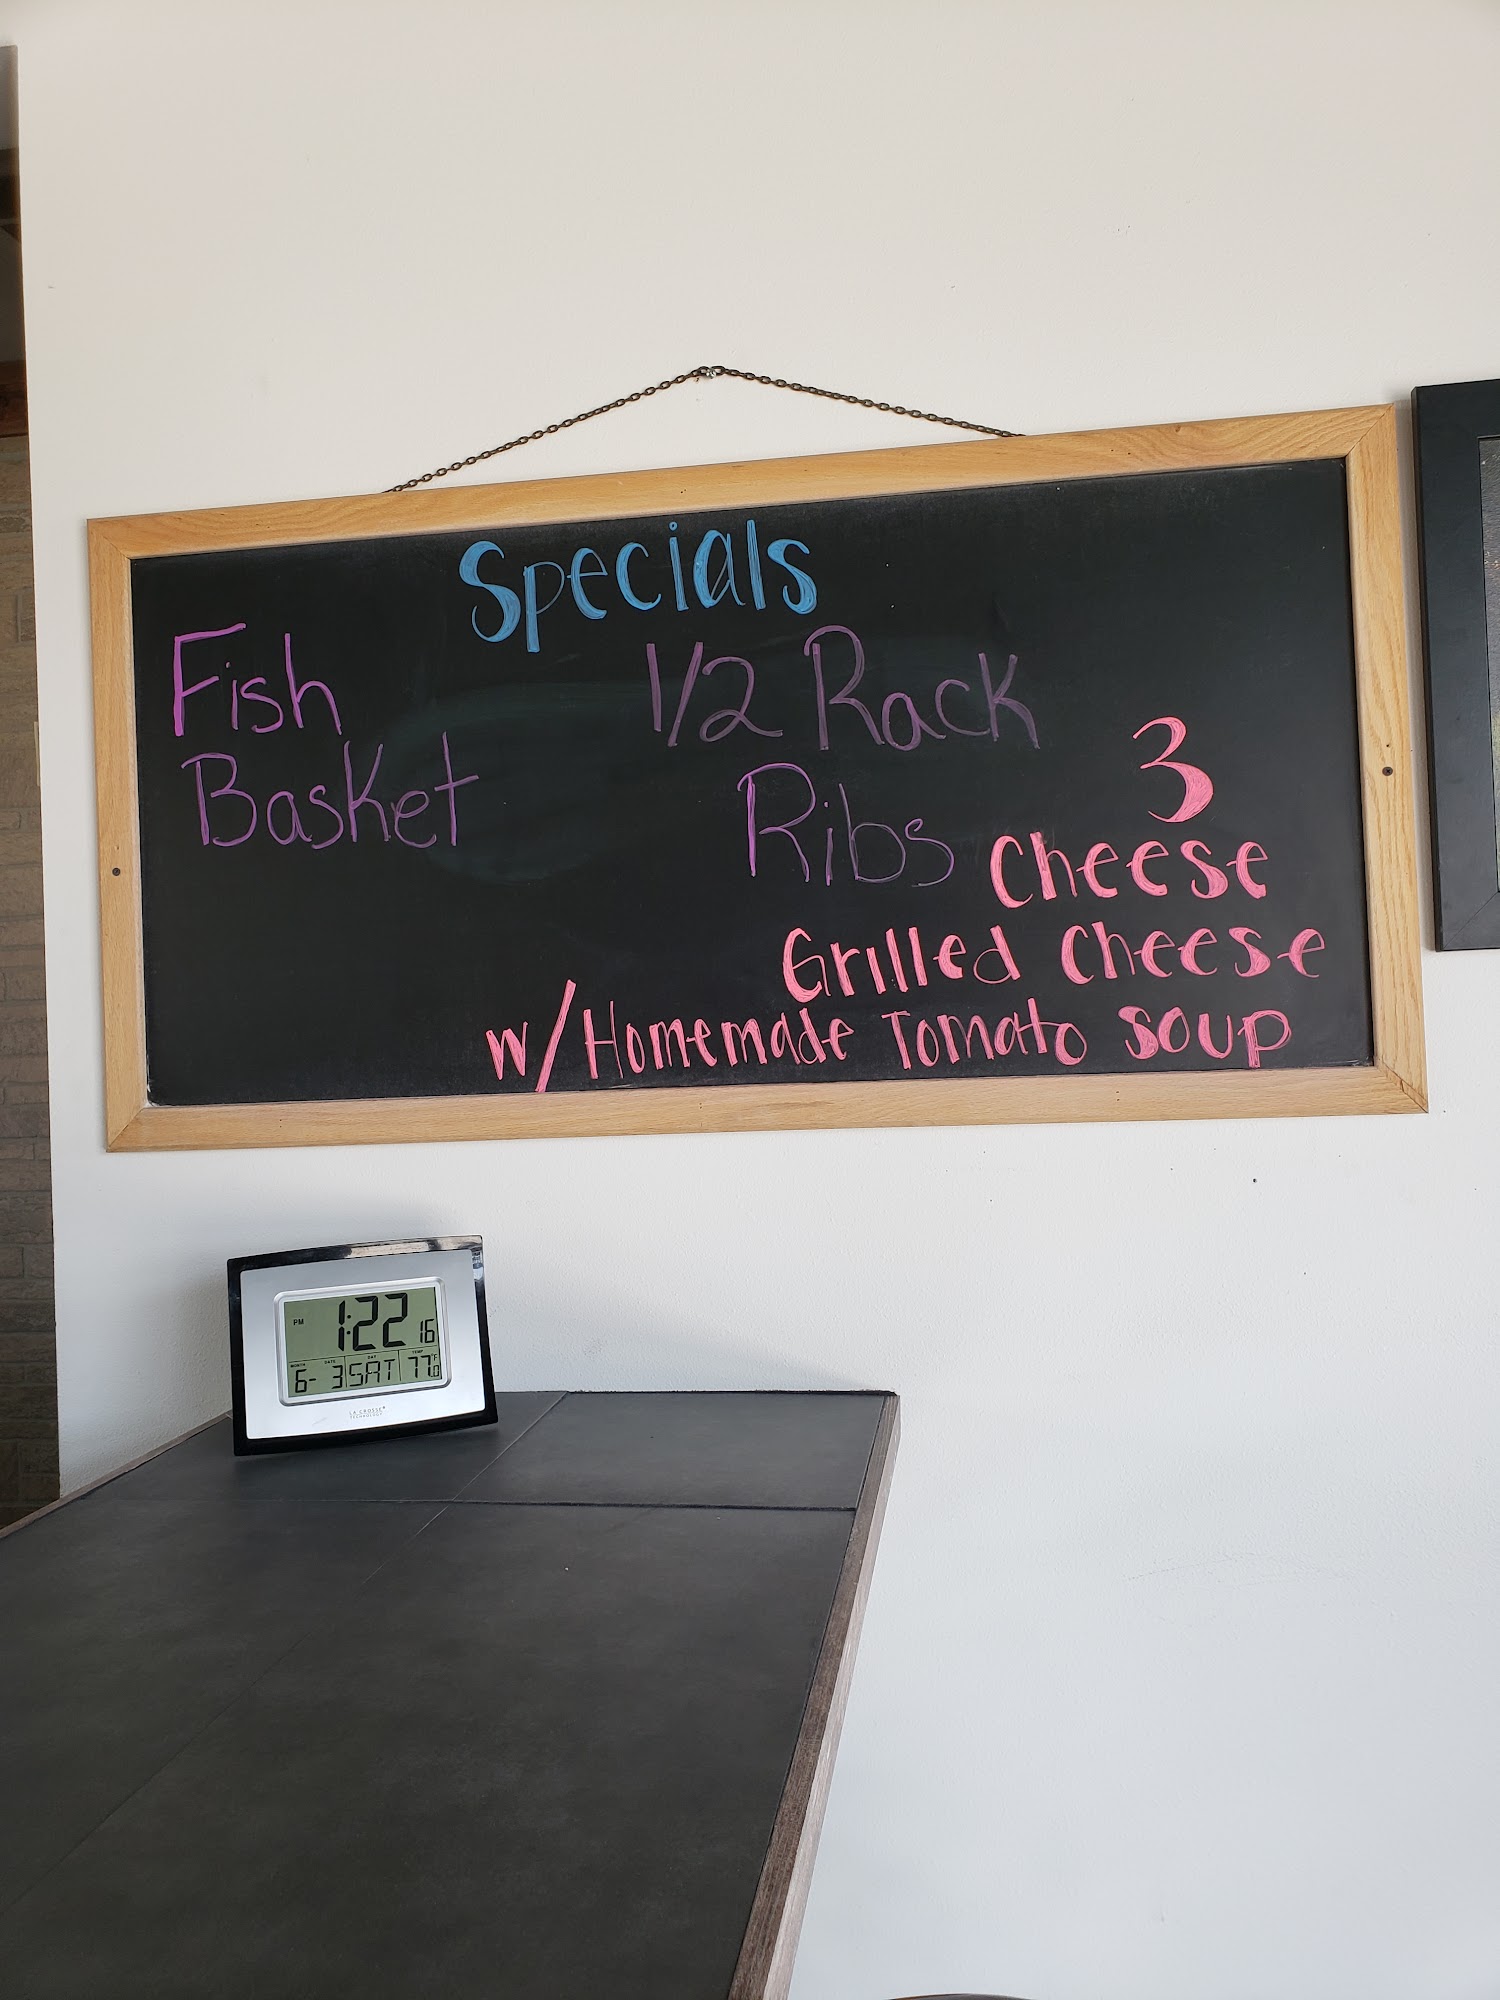 Specials
Fish
Basket
1/2 Rack
Ribs
3
Cheese
Grilled Cheese
w/Homemade Tomato Soup
PM 1:22 16
MONTH DATE DAY TEMP
6- 3 SAT 77.0 °F
LA CROSSE
TECHNOLOGY